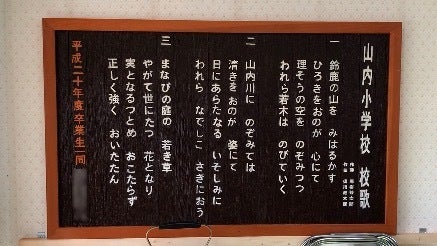 山内小学校 校歌
一 鈴鹿の山を みはるかす
ひろきをおのが 心にて
理そうの空を のぞみつつ
われら若木は のびていく
二 山内川に のぞみては
清きをおのが 姿にて
日にあらたなる いそしみに
われら なでしこ さきにおう
三 まなびの庭の 若き草
やがて世にたつ 花となり
実となるつとめ おこたらず
正しく強く おいたたん
平成二十年度卒業生一同